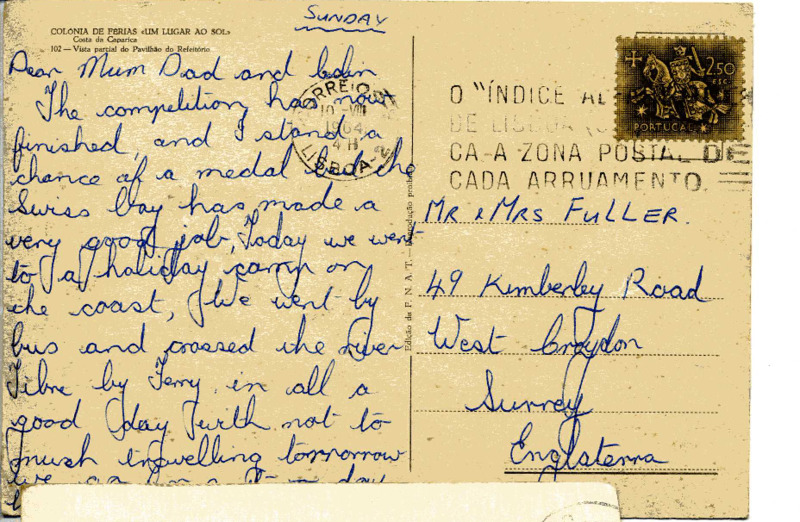 SUNDAY
COLÓNIA DE FÉRIAS «UM LUGAR AO SOL»
Costa da Caparica
102 — Vista parcial do Pavilhão do Refeitório
Dear Mum Dad and
The competition has now
finished, and I stand a
chance of a medal but the
Swiss boy has made a
very good job, Today we went
to a holiday camp on
the coast, We went by
bus and crossed the river
Tibre by Ferry in all a
good day with not to
mush travelling tommorrow
we day
CORREIO
10-VIII
1964
4 H
LISBOA-2
Edição da F. N. A. T. — Reprodução proibida
O "ÍNDICE AL
DE LISBOA
CA-A ZONA POSTAL DE
CADA ARRUAMENTO
2.50
ESC
PORTUGAL
MR & MRS FULLER.
49 Kimberley Road
West Croydon
Surrey
Englaterra